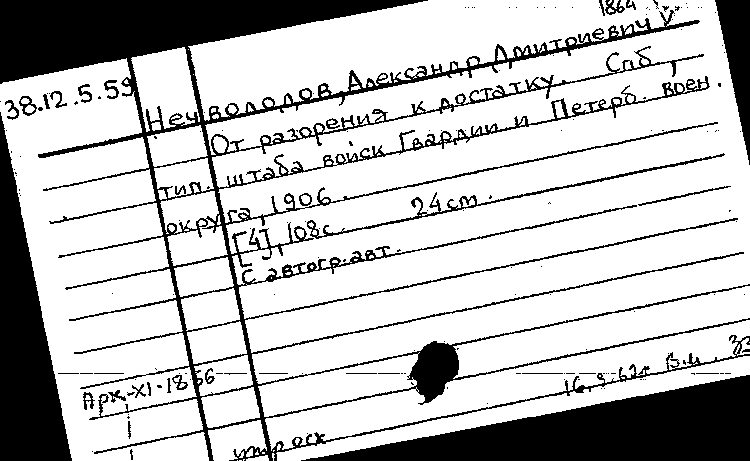 1864
38.12.5.59
Нечволодов, Александр Дмитриевич V
От разорения к достатку. Спб,
тип. штаба войск Гвардии и Петерб. воен.
округа, 1906.
[4], 108с. 24cm.
С автогр. авт.
Арк.-XI-1856
16.3.62г В.и.